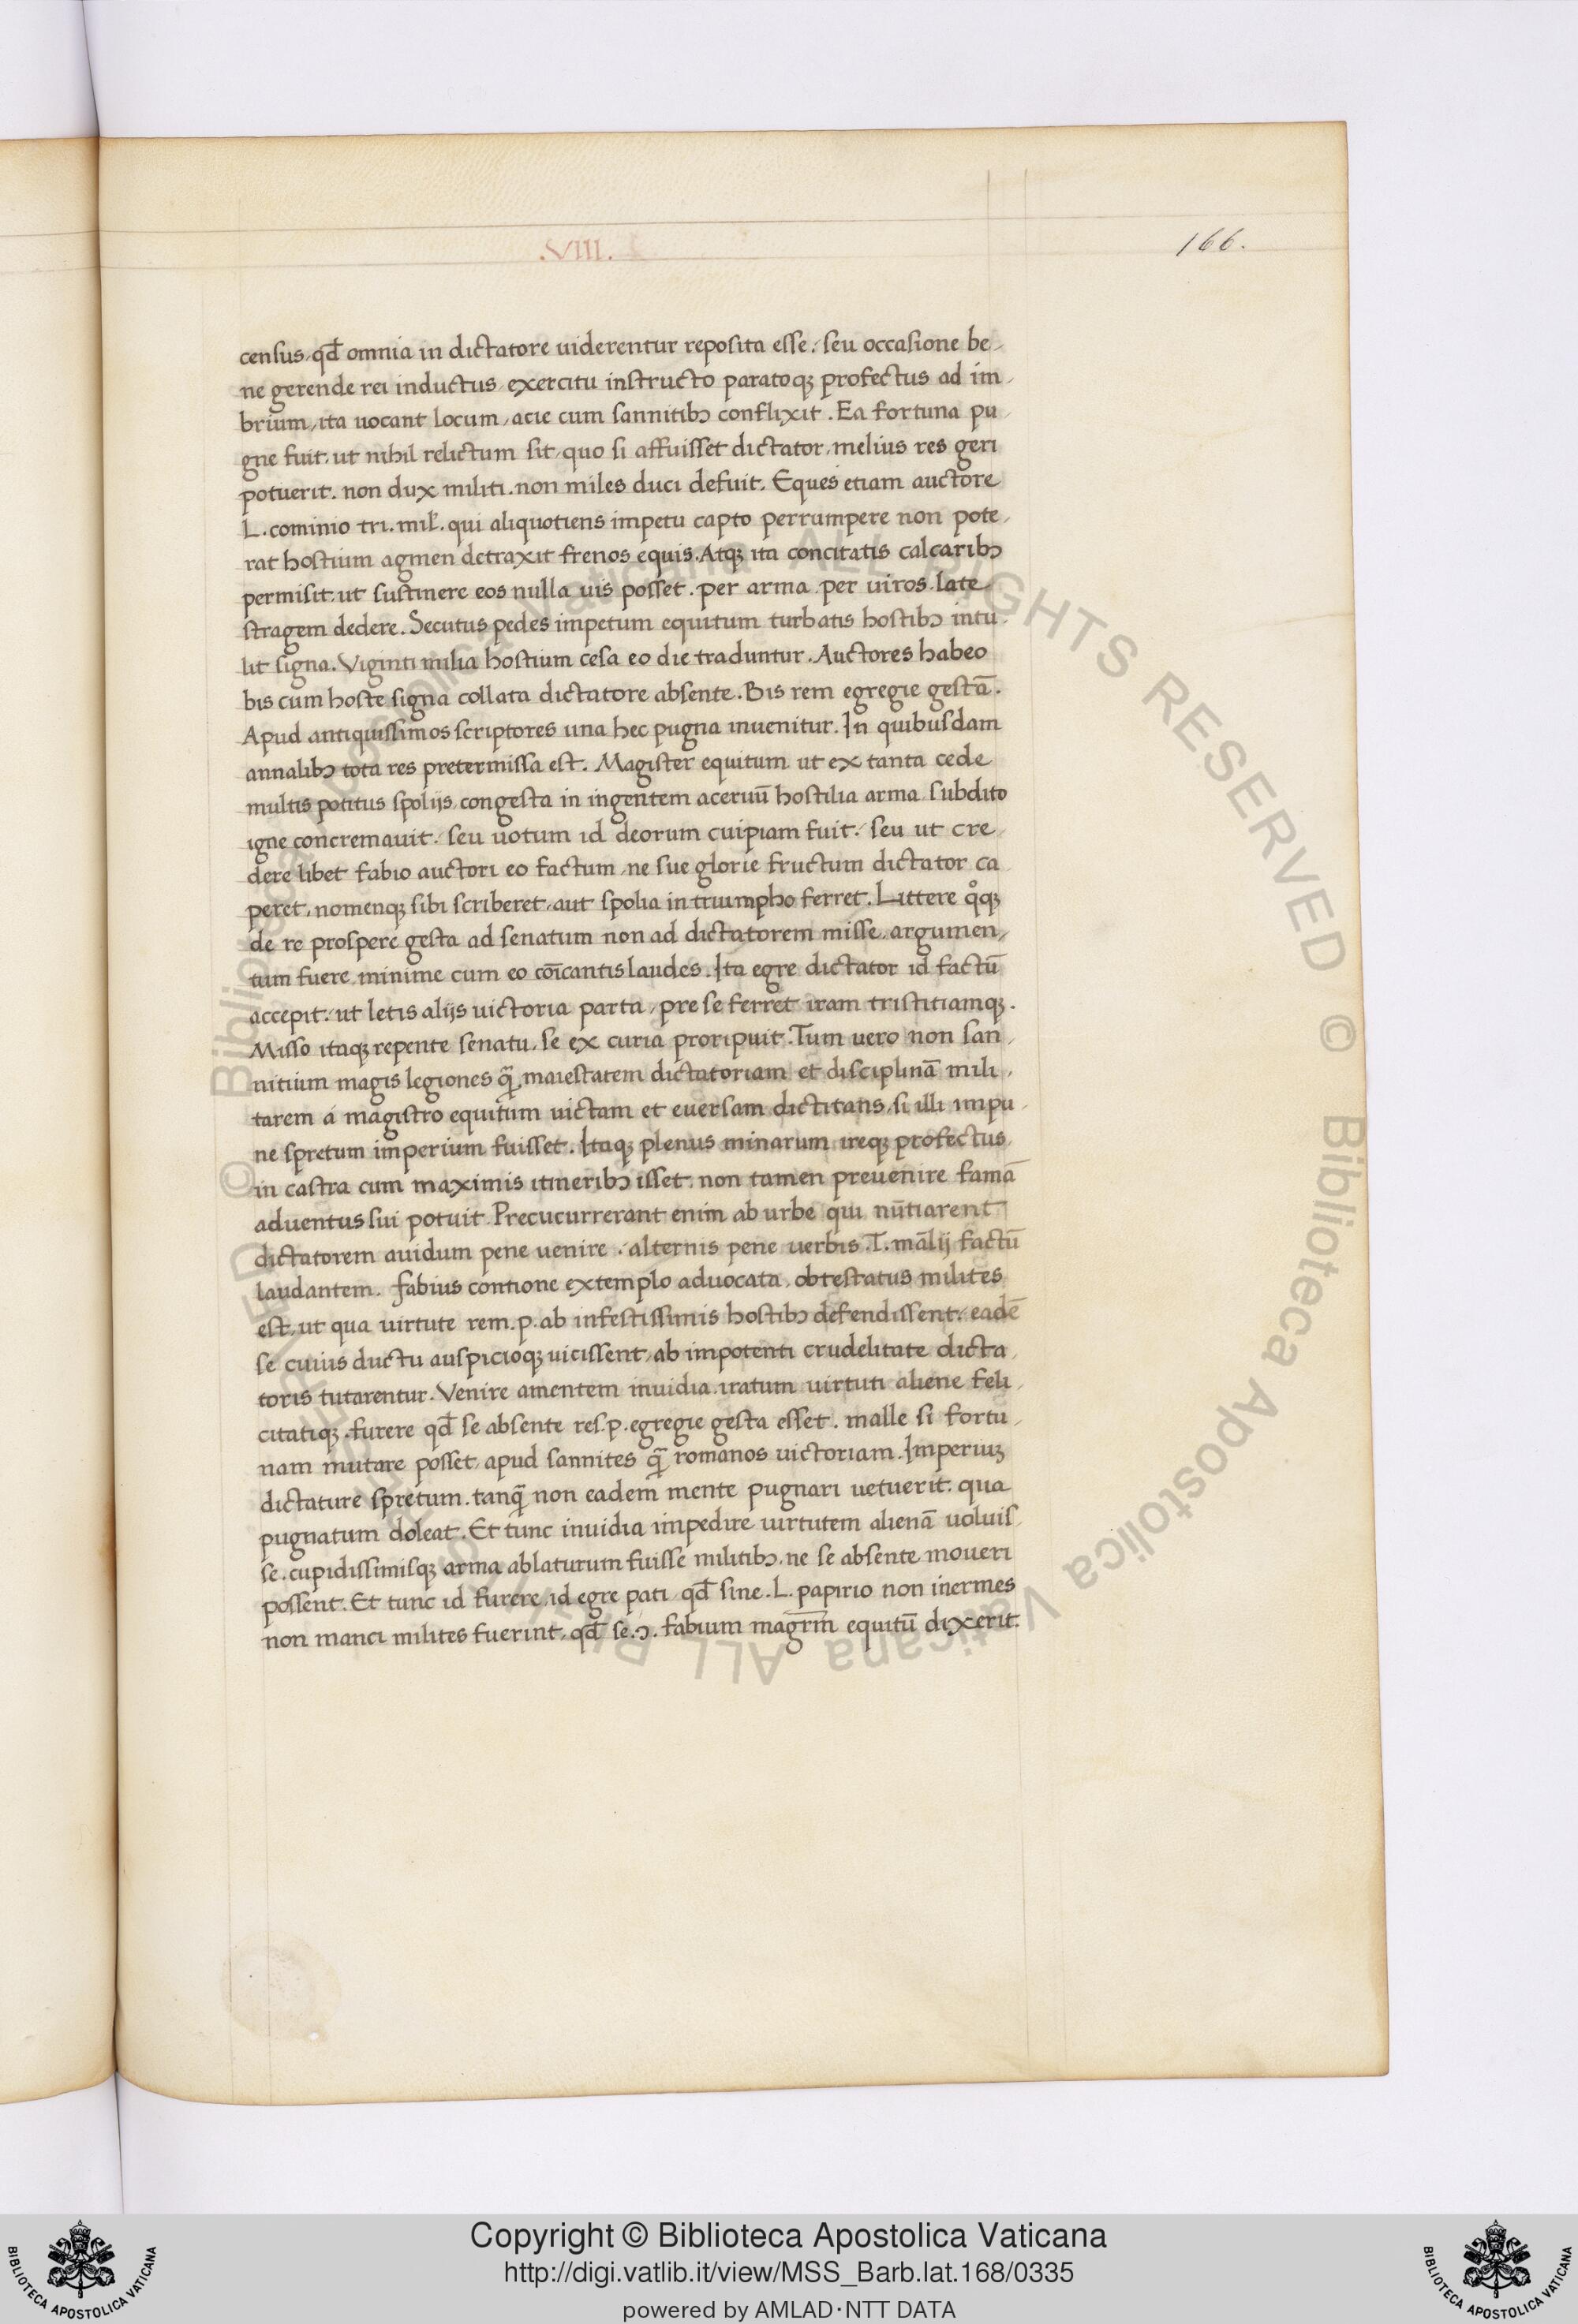 .VIII.
166.
census, qđ omnia in dictatore uiderentur reposita esse. seu occasione be-
ne gerende rei inductus, exercitu instructo paratoqꝫ profectus ad im-
brium, ita uocant locum, acie cum sannitibꝫ conflixit. Ea fortuna pu-
gne fuit, ut nihil relictum sit, quo si affuisset dictator, melius res geri
potuerit. non dux militi. non miles duci defuit. Eques etiam auctore
L. cominio tri. mil̄. qui aliquotiens impetu capto perrumpere non pote-
rat hostium agmen detraxit frenos equis. Atqꝫ ita concitatis calcaribꝫ
permisit, ut sustinere eos nulla uis posset. per arma per uiros late
stragem dedere. Secutus pedes impetum equitum turbatis hostibꝫ intu-
lit signa. Viginti milia hostium cesa eo die traduntur. Auctores habeo
bis cum hoste signa collata dictatore absente. Bis rem egregie gestā.
Apud antiquissimos scriptores una hec pugna inuenitur. In quibusdam
annalibꝫ tota res pretermissa est. Magister equitum ut ex tanta cede
multis potitus spolijs, congesta in ingentem aceruū hostilia arma subdito
igne concremauit. seu uotum id deorum cuipiam fuit. seu ut cre-
dere libet fabio auctori eo factum, ne sue glorie fructum dictator ca
peret, nomenqꝫ sibi scriberet, aut spolia in triumpho ferret. Littere q̊qꝫ
de re prospere gesta ad senatum non ad dictatorem misse, argumen-
tum fuere minime cum eo cōicantis laudes. Ita egre dictator id factū
accepit, ut letis alijs uictoria parta, pre se ferret iram tristitiamqꝫ.
Misso itaqꝫ repente senatu, se ex curia proripuit. Tum uero non san-
nitium magis legiones q̄ maiestatem dictatoriam et disciplinā mili-
tarem a magistro equitum uictam et euersam dictitans, si illi impu-
ne spretum imperium fuisset. Itaqꝫ plenus minarum ireqꝫ profectus
in castra cum maximis itineribꝫ isset, non tamen preuenire famā
aduentus sui potuit. Precucurrerant enim ab urbe qui nūtiarent
dictatorem auidum pene uenire. alternis pene uerbis. T. mālij factū
laudantem. fabius contione extemplo aduocata, obtestatus milites
est, ut qua uirtute rem. p. ab infestissimis hostibꝫ defendissent, eadē
se cuius ductu auspicioqꝫ uicissent, ab impotenti crudelitate dicta-
toris tutarentur. Venire amentem inuidia iratum uirtuti aliene feli-
citatiqꝫ. furere qđ se absente res. p. egregie gesta esset. malle si fortu-
nam mutare posset, apud sannites q̄ romanos uictoriam. Imperiuꝫ
dictature spretum. tanq̄ non eadem mente pugnari uetuerit. qua
pugnatum doleat. Et tunc inuidia impedire uirtutem alienā uoluis-
se. cupidissimisqꝫ arma ablaturum fuisse militibꝫ, ne se absente moueri
possent. Et tunc id furere, id egre pati qđ sine. L. papirio non inermes
non manci milites fuerint, qđ se. ɔ. fabium magrm̄ equitū dixerit.
© Biblioteca Apostolica Vaticana ALL RIGHTS RESERVED
Copyright © Biblioteca Apostolica Vaticana
http://digi.vatlib.it/view/MSS_Barb.lat.168/0335
powered by AMLAD·NTT DATA
BIBLIOTECA APOSTOLICA VATICANA
BIBLIOTECA APOSTOLICA VATICANA